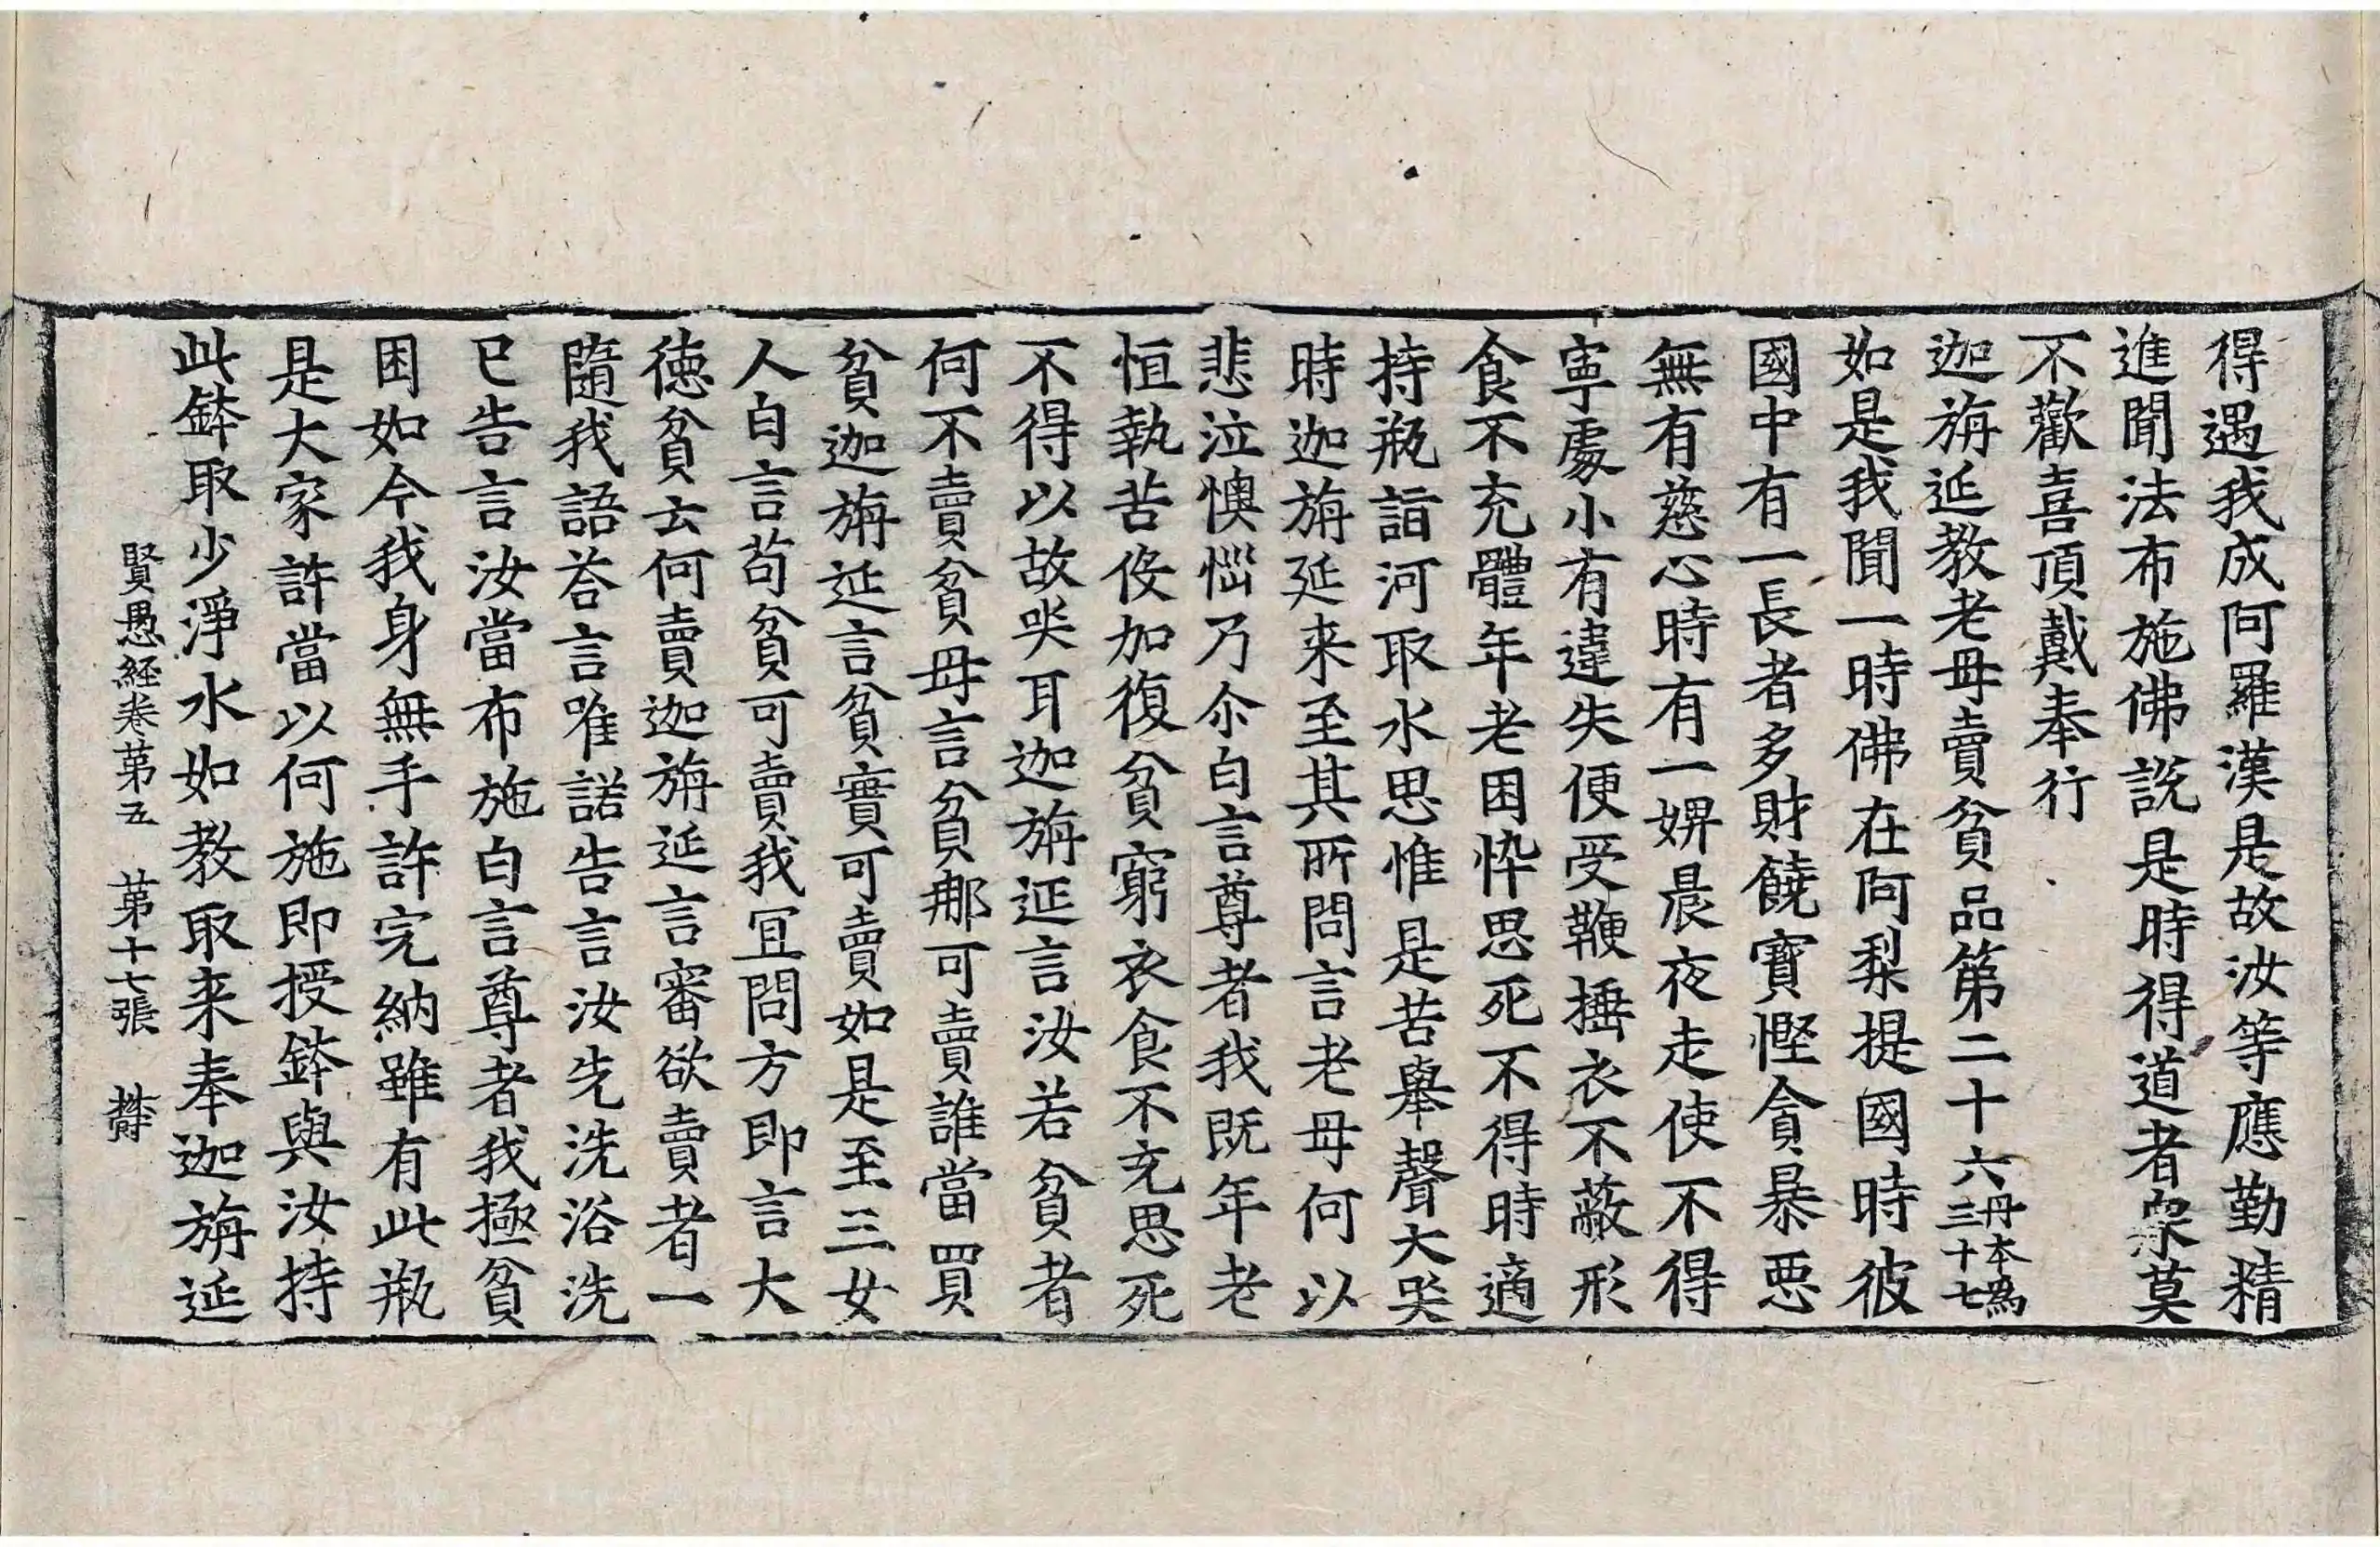 得遇我成阿羅漢是故汝等應勤精
進聞法布施佛說是時得道者衆莫
不歡喜頂戴奉行
迦旃延教老母賣貧品第二十六丹本爲三十七
如是我聞一時佛在阿梨提國時彼
國中有一長者多財饒寶慳貪暴惡
無有慈心時有一婢晨夜走使不得
寧處小有違失便受鞭捶衣不蔽形
食不充體年老困悴思死不得時適
持瓶詣河取水思惟是苦舉聲大哭
時迦旃延来至其所問言老母何以
悲泣懊惱乃尒白言尊者我既年老
恒執苦役加復貧窮衣食不充思死
不得以故哭耳迦旃延言汝若貧者
何不賣貧母言貧那可賣誰當買
貧迦旃延言貧實可賣如是至三女
人白言苟貧可賣我冝問方即言大
德貧云何賣迦旃延言審欲賣者一
隨我語荅言唯諾告言汝先洗浴洗
已告言汝當布施白言尊者我極貧
困如今我身無手許完納雖有此瓶
是大家許當以何施即授鉢與汝持
此鉢取少淨水如教取来奉迦旃延
賢愚経卷第五 第十七張